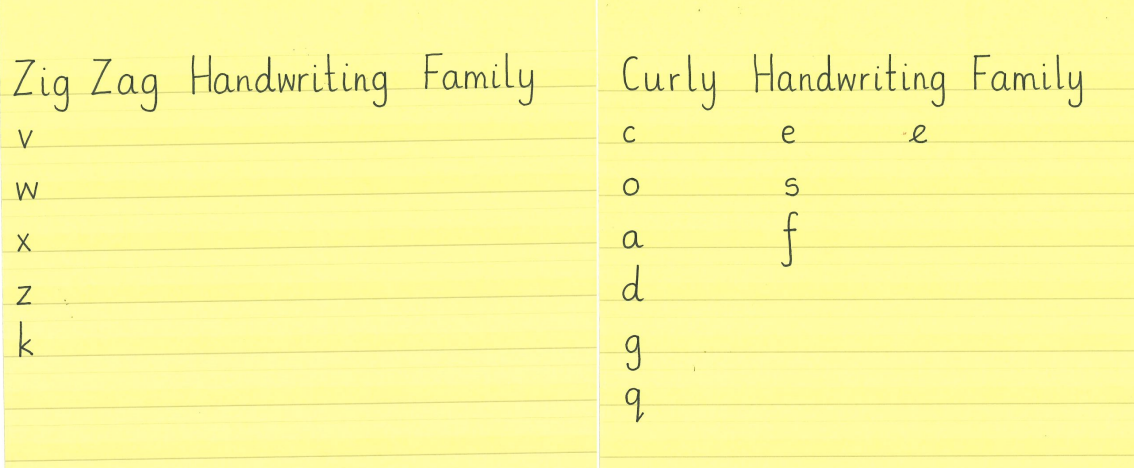 Zig Zag Handwriting Family
v
w
x
z
k
Curly Handwriting Family
c e e
o s
a f
d
g
q